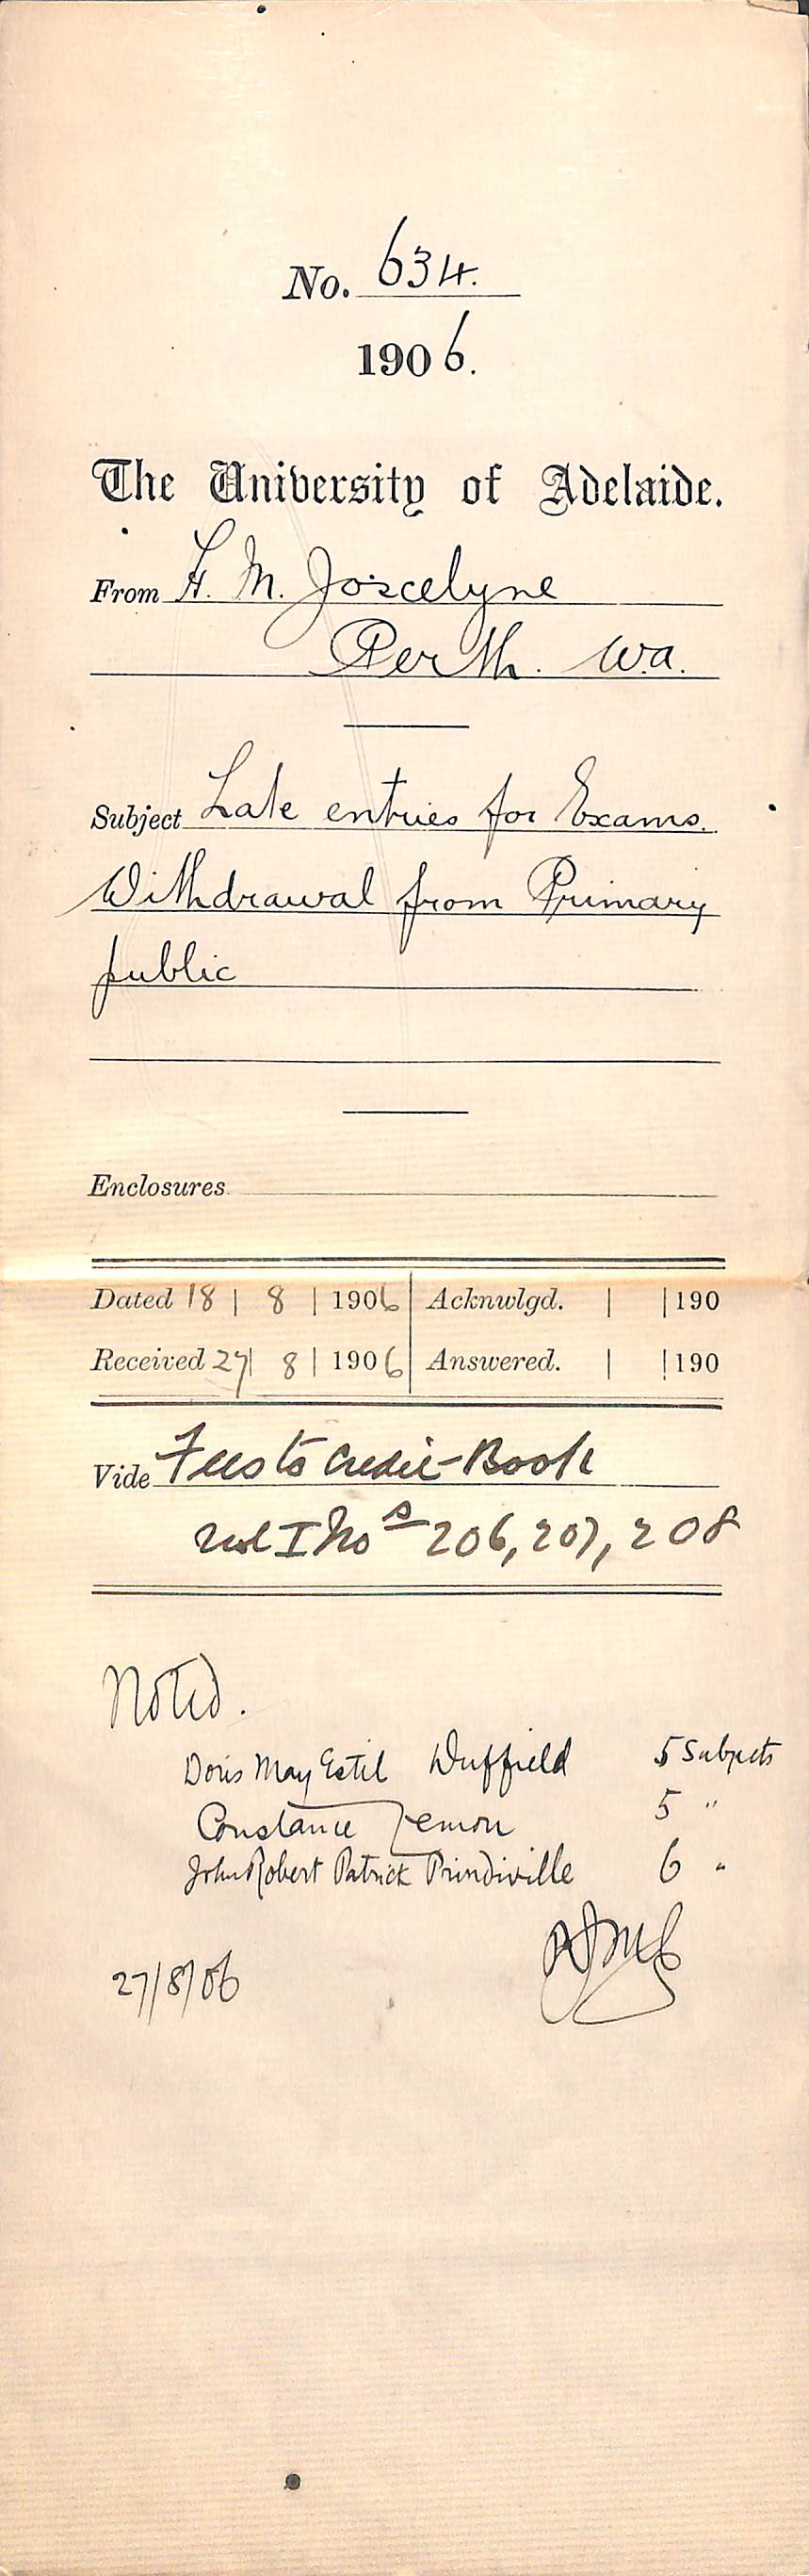 No. 634.
1906.
The University of Adelaide.
From F. M. Joscelyne
Perth. W.a.
Subject Late entries for Exams.
Withdrawal from Primary
public
Enclosures
Dated 18 | 8 | 1906 Acknwlgd. | | 190
Received 27 | 8 | 1906 Answered. | | 190
Vide Fees to Credit-Book
vol I Nos 206, 207, 208
Noted.
Doris May Estil Duffield 5 Subjects
Constance Lemon 5 "
John Robert Patrick Prindiville 6 "
27/8/06